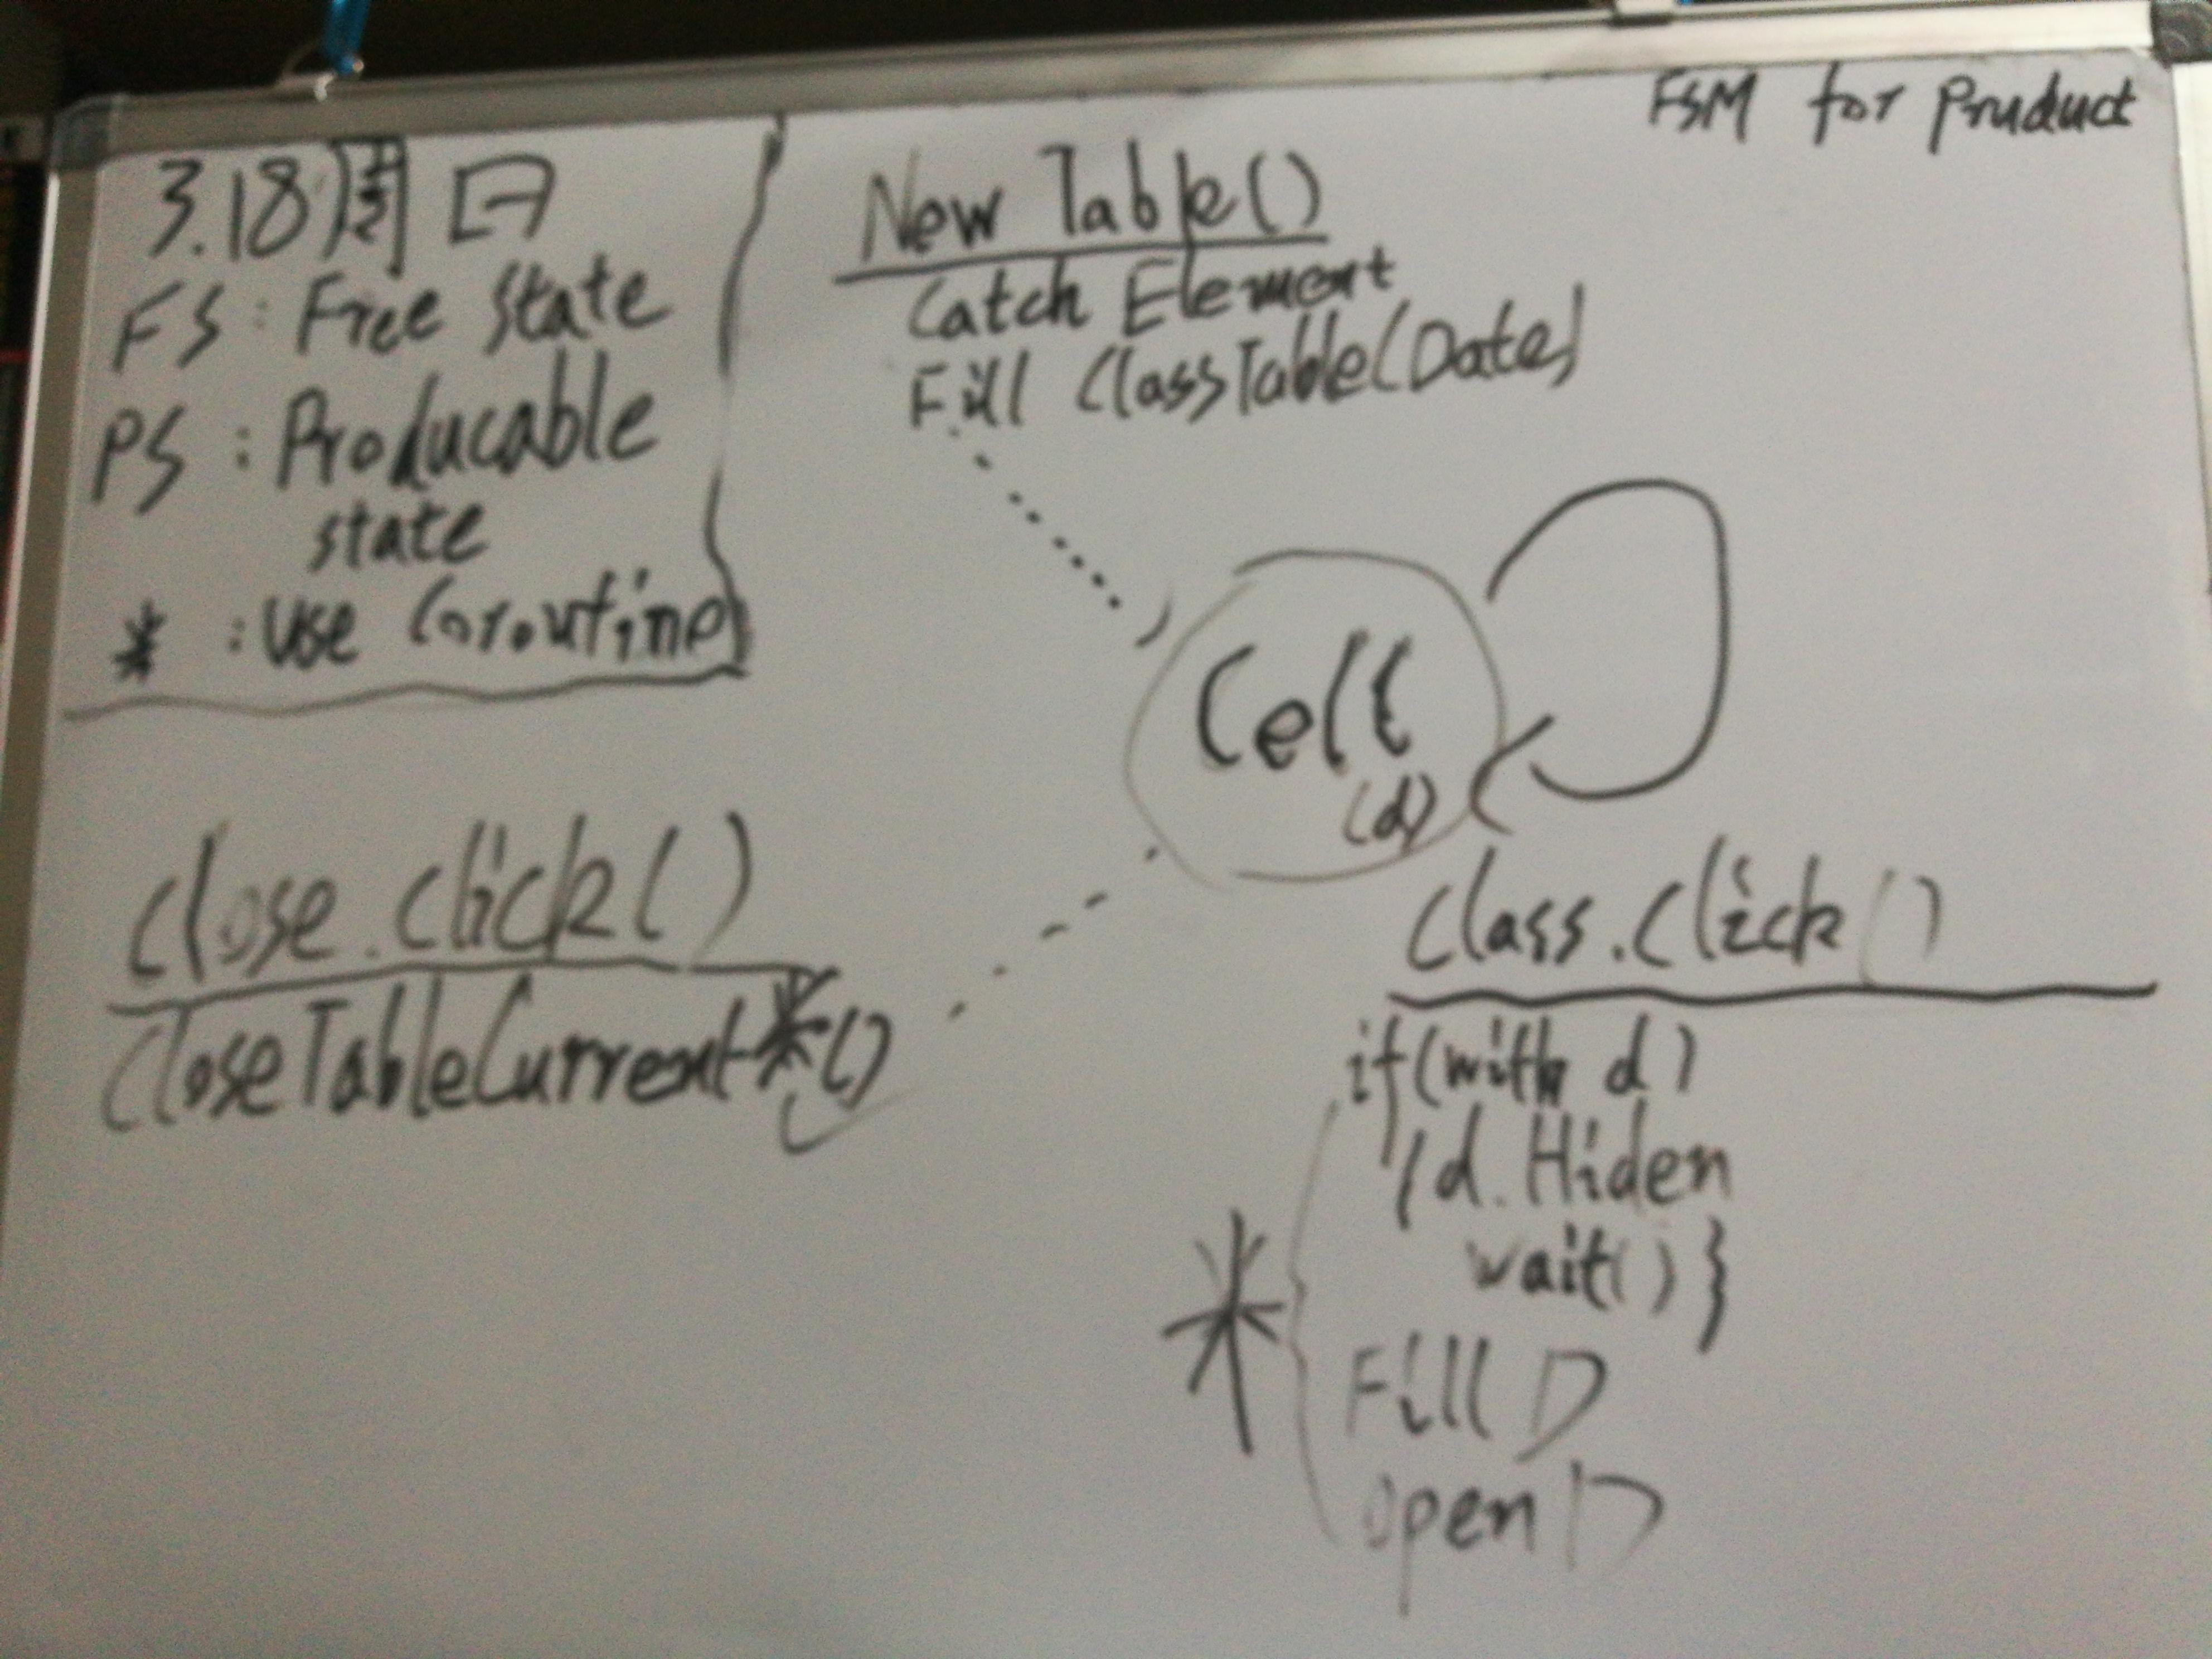 FSM for Pruduct
3.18周日
FS: Free State
PS: Producable
state
*: Use Coroutine
New Table()
Catch Element
Fill ClassTable(Date)
Cell
(d)
Close.Click()
CloseTableCurrent*()
Class.Click()
if(with d)
{d.Hiden
wait()}
*
Fill D
open D